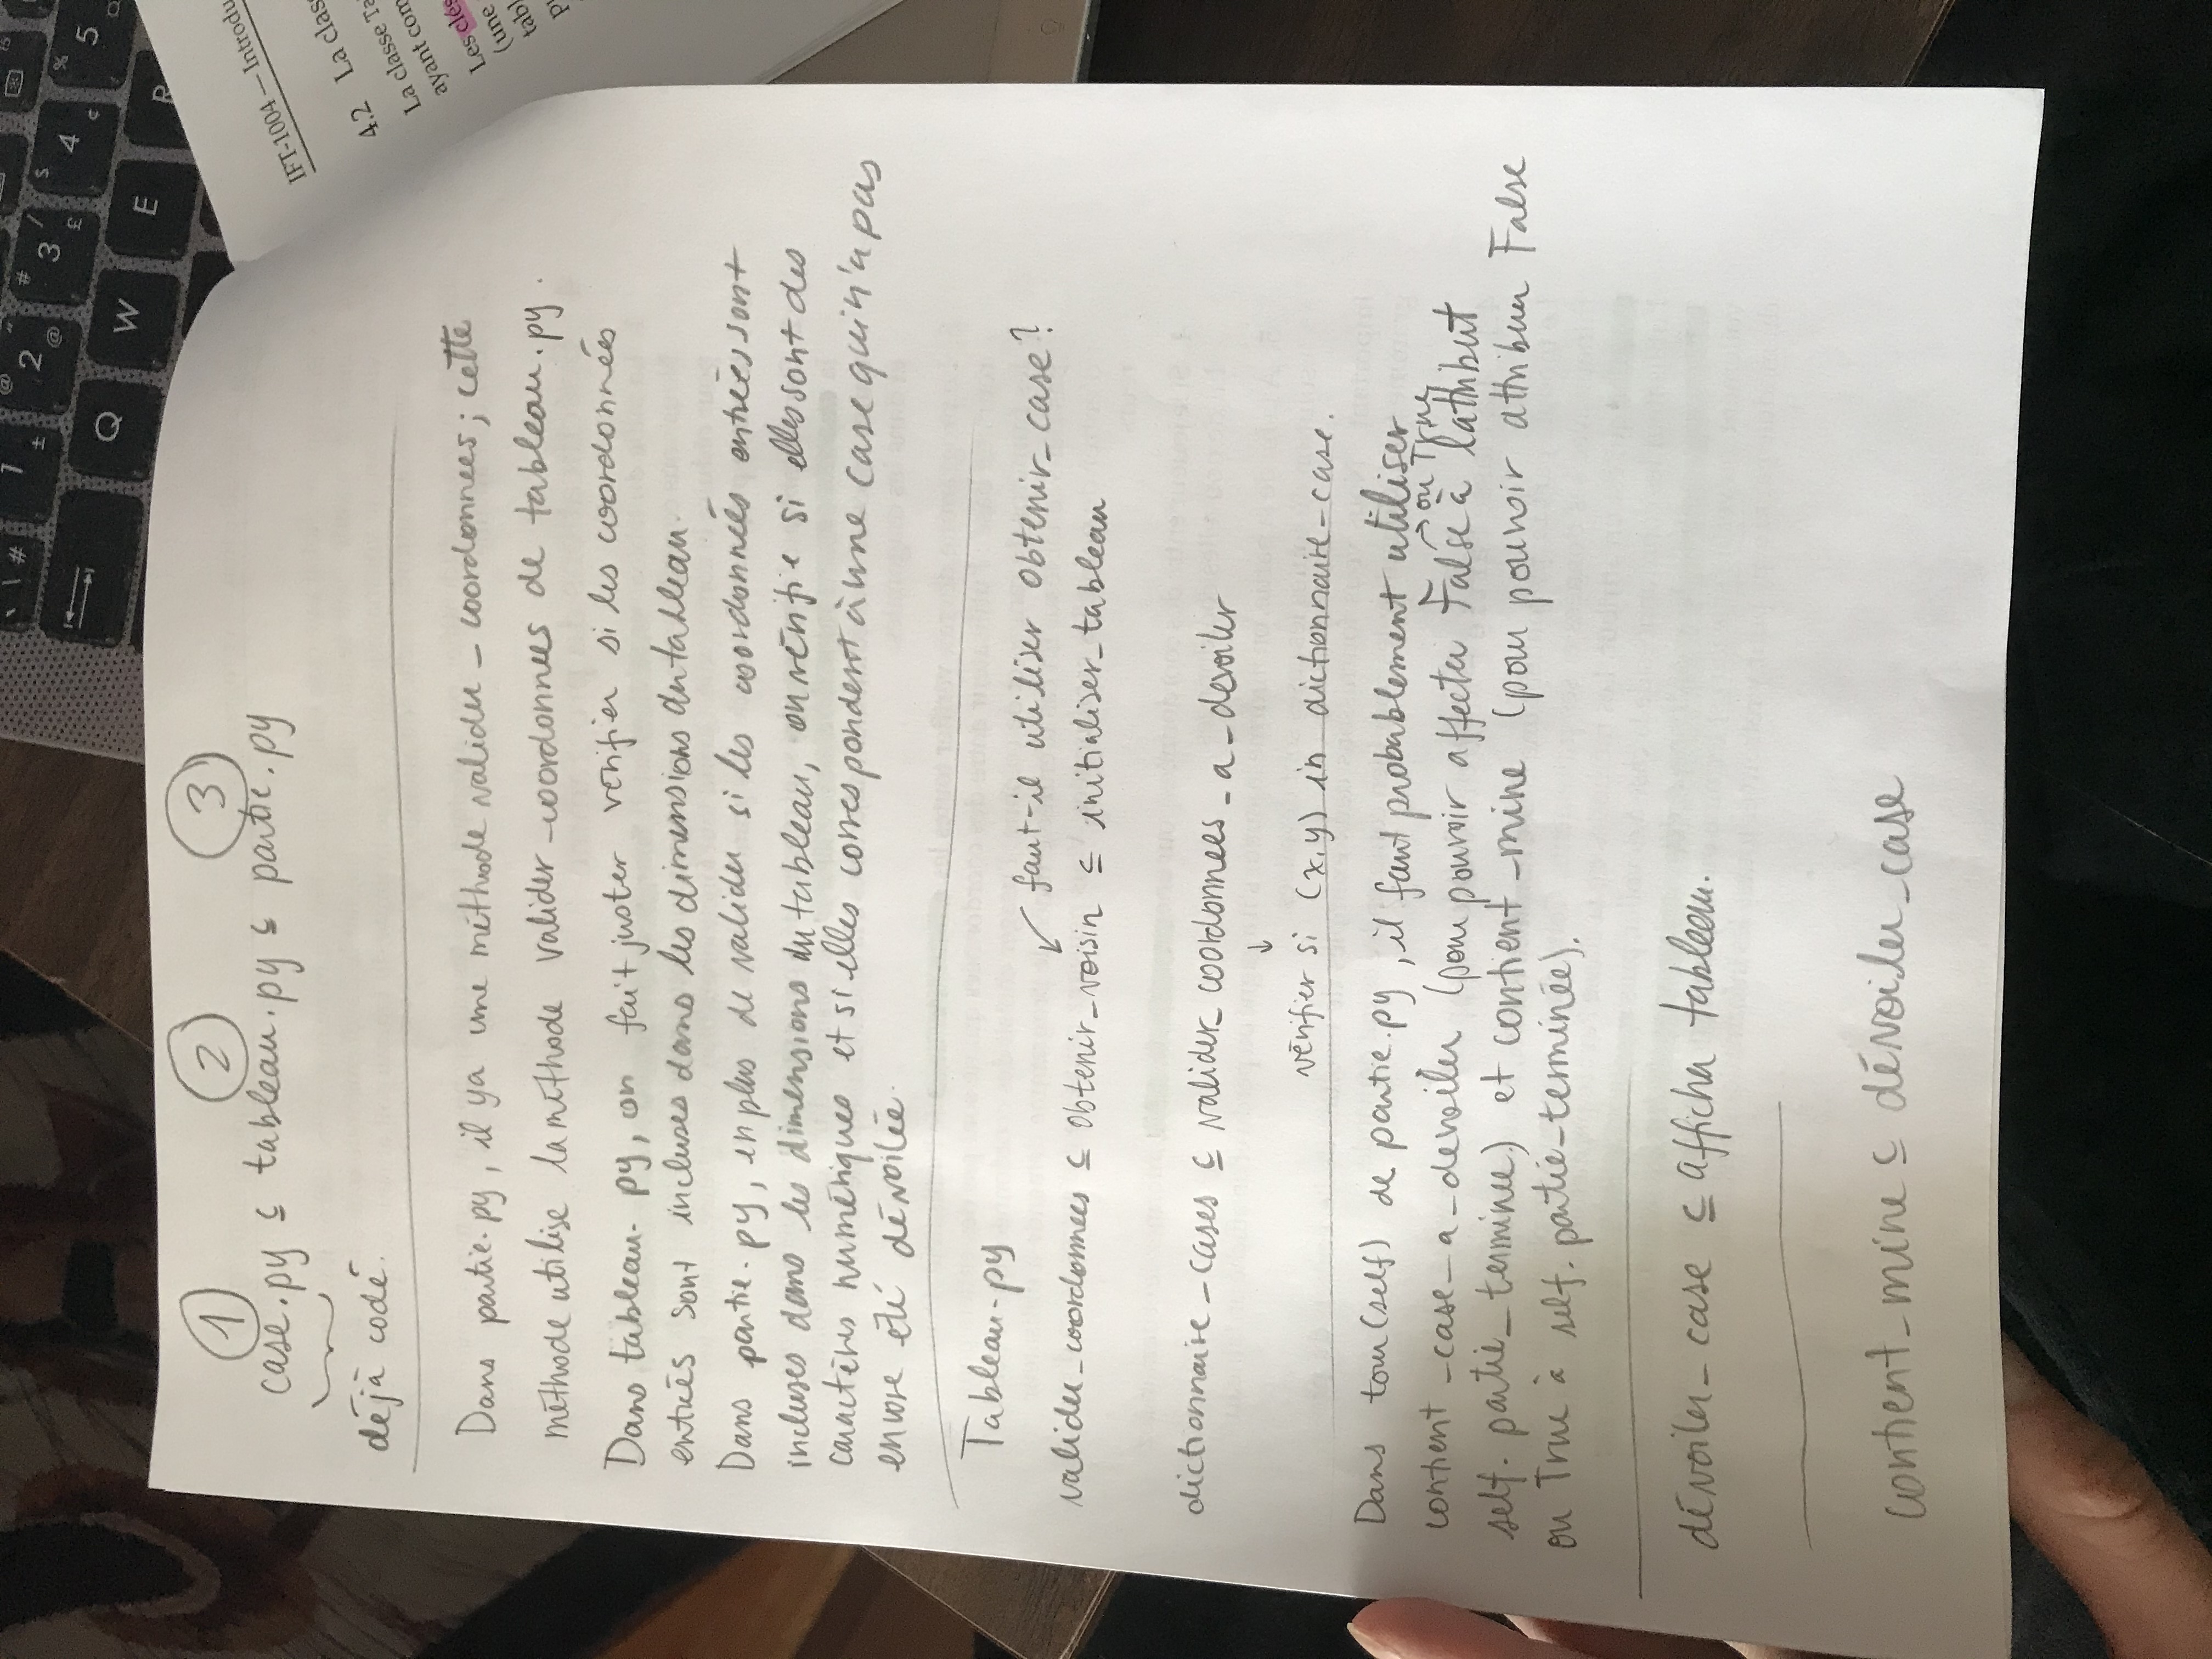 1 2 3
case.py ⊆ tableau.py ⊆ partie.py
déjà codé.
Dans partie.py, il y a une méthode valider_coordonnees; cette
méthode utilise la méthode valider_coordonnees de tableau.py.
Dans tableau.py, on fait juster vérifier si les coordonnées
entrées sont incluses dans les dimensions du tableau.
Dans partie.py, en plus de valider si les coordonnées entrées sont
incluses dans les dimensions du tableau, on vérifie si elles sont des
caractères numériques et si elles correspondent à une case qui n'a pas
encore été dévoilée.
Tableau.py
faut-il utiliser obtenir_case?
↙
valider_coordonnees ⊆ obtenir_voisin ⊆ initialiser_tableau
dictionnaire_cases ⊆ valider_coordonnees_a_devoiler
↓
vérifier si (x,y) in dictionnaire_case.
Dans tour(self) de partie.py, il faut probablement utiliser
→ ou True
contient_case_a_devoiler (pour pouvoir affecter False à l'attribut
self.partie_terminee) et contient_mine (pour pouvoir attribuer False
ou True à self.partie_terminée).
dévoiler_case ⊆ afficher tableau.
contient_mine ⊆ dévoiler_case
# 1 ± @ 2 " @ # 3 / £ $ 4 ¢ % 5
Q W E R
IFT-1004 — Introdu
4.2 La clas
La classe Ta
ayant com
Les clés
(une
tabl